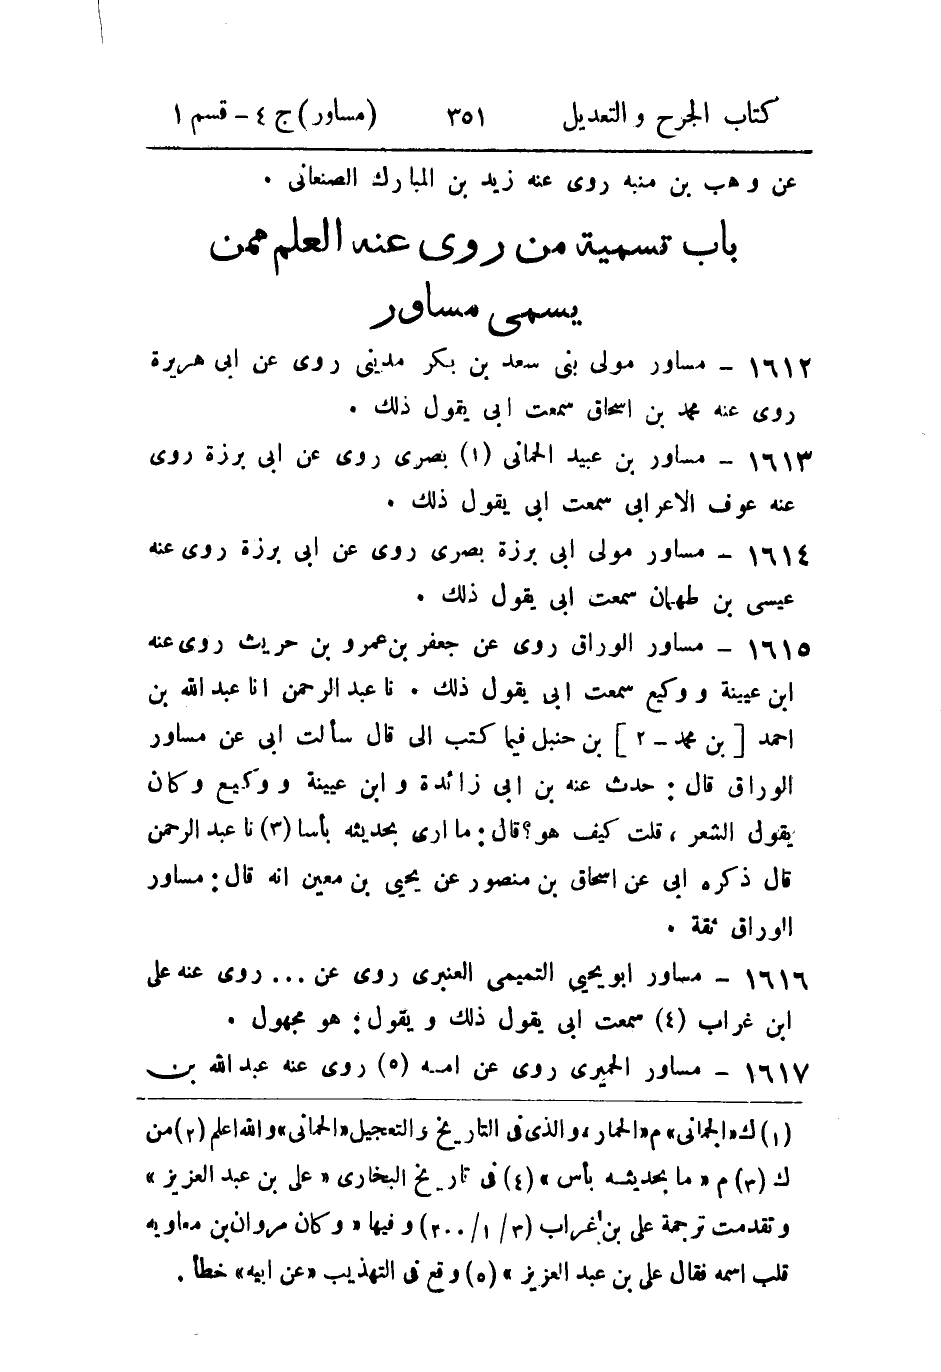 كتاب الجرح و التعديل ٣٥١ (مساور) ج ٤ - قسم ١
عن وهب بن منبه روى عنه زيد بن المبارك الصنعانى .
باب تسمية من روى عنه العلم ممن
يسمى مساور
١٦١٢ - مساور مولى بنى سعد بن بكر مدينى روى عن ابى هريرة
روى عنه محمد بن اسحاق سمعت ابى يقول ذلك .
١٦١٣ - مساور بن عبيد الحمانى (١) بصرى روى عن ابى برزة روى
عنه عوف الاعرابى سمعت ابى يقول ذلك .
١٦١٤ - مساور مولى ابى برزة بصرى روى عن ابى برزة روى عنه
عيسى بن طهمان سمعت ابى يقول ذلك .
١٦١٥ - مساور الوراق روى عن جعفر بن عمرو بن حريث روى عنه
ابن عيينة و وكيع سمعت ابى يقول ذلك . نا عبد الرحمن انا عبد الله بن
احمد [ بن محمد - ٢ ] بن حنبل فيما كتب الى قال سألت ابى عن مساور
الوراق قال : حدث عنه بن ابى زائدة و ابن عيينة و وكيع وكان
يقول الشعر ، قلت كيف هو؟ قال : ما ارى بحديثه بأسا (٣) نا عبد الرحمن
قال ذكره ابى عن اسحاق بن منصور عن يحيى بن معين انه قال : مساور
الوراق ثقة .
١٦١٦ - مساور ابو يحيى التميمى العنبرى روى عن ... روى عنه على
ابن غراب (٤) سمعت ابى يقول ذلك و يقول : هو مجهول .
١٦١٧ - مساور الحميرى روى عن امه (٥) روى عنه عبد الله بن
(١) ك «الجمانى» م «الحمار ، و الذى فى التاريخ و التعجيل «الحمانى» و الله اعلم (٢) من
ك (٣) م « ما بحديثه بأس » (٤) فى تاريخ البخارى « على بن عبد العزيز »
و تقدمت ترجمة على بن غراب (٣/ ١/ ٢٠٠) و فيها « و كان مروان بن معاويه
قلب اسمه فقال على بن عبد العزيز » (٥) وقع فى التهذيب «عن ابيه» خطأ .